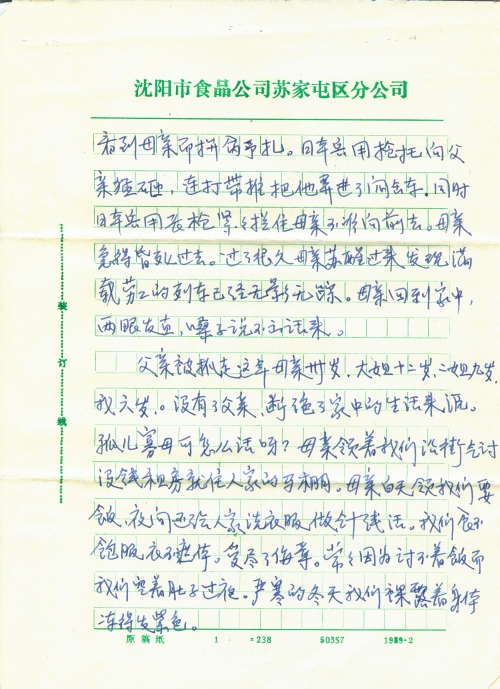 沈阳市食品公司苏家屯区分公司
看到母亲而拼命争扎。日本兵用抢托向父
亲猛砸，连打带推把他弄进了闷缶车。同时
日本兵用长枪紧紧拦住母亲不准向前去。母亲
急得昏死过去。过了很久母亲苏醒过来发现满
载劳工的列车已经无影无踪。母亲回到家中，
两眼发直，嗓子说不出话来。
父亲被抓走这年母亲卅岁，大姐十二岁，二姐九岁，
我六岁。没有了父亲，断绝了家中的生活来源。
孤儿寡母可怎么活呀？母亲领着我们沿街乞讨
没钱租房就住人家的马棚。母亲白天领我们要
饭，夜间还给人家洗衣服做针线活。我们食不
饱腹衣不遮体，受尽了侮辱。常常因为讨不着饭而
我们空着肚子过夜。严寒的冬天我们裸露着身体
冻得发紫色。
装
订
线
原稿纸 1 =238 50357 1989·2